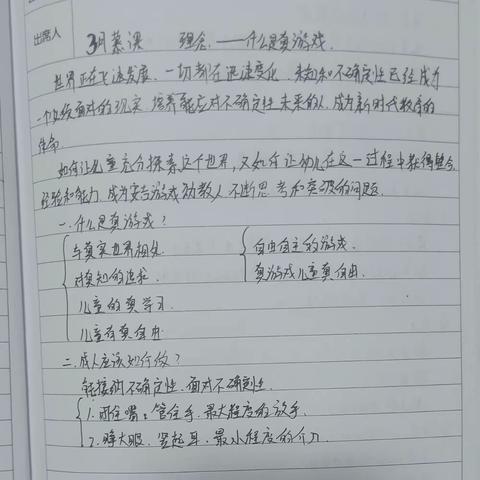 出席人
3月慕课 理念——什么是真游戏.
世界正在飞速发展,一切都在迅速变化,未知和不确定性已经成为
一个必须面对的现实,培养能应对不确定性未来的人,成为新时代教育的
使命
如何让儿童充分探索这个世界,又如何让幼儿在这一过程中获得整合
经验和能力,成为安吉游戏幼教人不断思考和突破的问题.
一.什么是真游戏?
与真实世界相处 自由自主的游戏.
对真知的追求 真游戏儿童真自由.
儿童的真学习
儿童有真自由
二.成人应该如何做?
能接纳不确定性,面对不确定性
1.闭住嘴,管住手,最大程度的放手.
2.睁大眼,竖起耳,最小程度的介入.